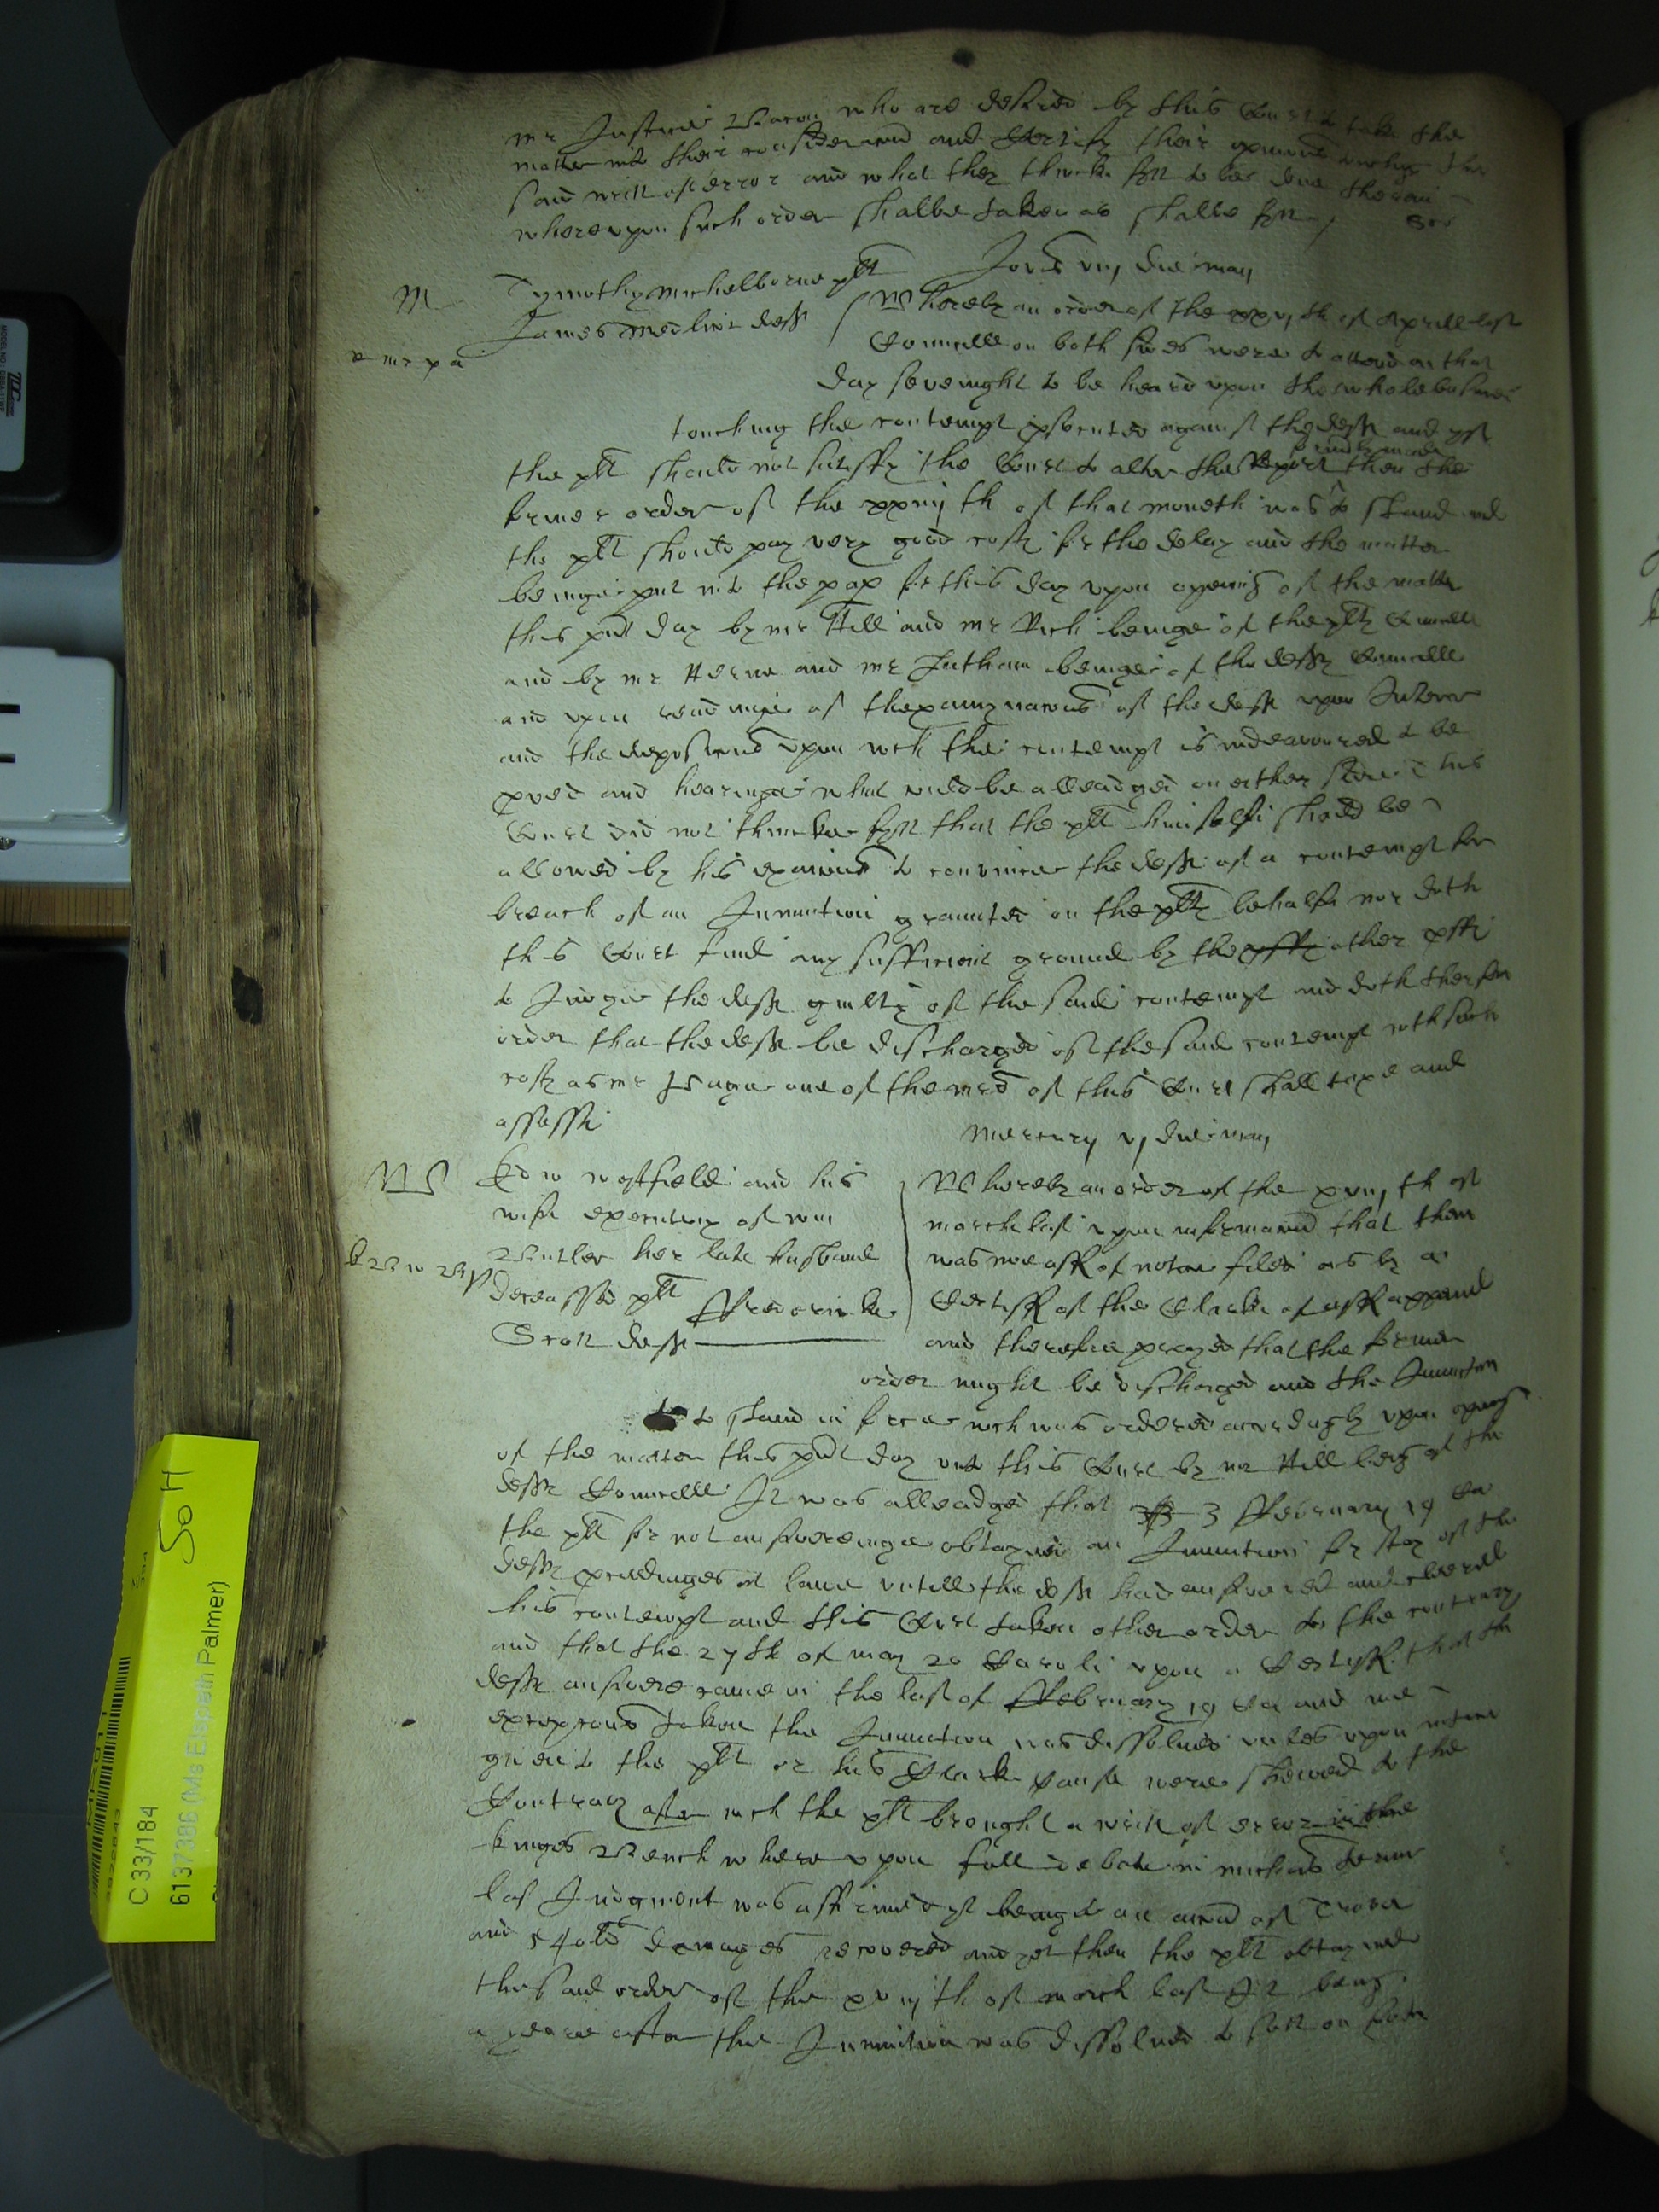 mr Justice Bacon who are desired by this Court to take the
matter into their consideracon and Certify their opinions touching the
said writt of error and what they thinke fitt to bee done therein
whereupon such order shalbe taken as shalbe fitt
Jovis viij die maij
M
Tymothy Michelborne plt
James deft
Whereby an order of the xxvj th of Aprill last
Councell on both sides were to attend on that
day sevenight to be heard upon the whole busines
touching the contempt psecuted against the deft and yf
the plt should not satisfy the Court to alter the Report then the
former order of the xxiiij th of that moneth was to stand and
the plt should pay very good costs for the delay and the matter
beinge put into the pap for this day upon opening of the matter
this psnt day by mr Hill and mr Rich beinge of the plts Councell
and by mr Herne and mr Latham beinge of the defts Councell
and upon readinge of thexaminacons of the deft upon Interr
and the deposicons upon wch the contempt is indeavoured to be
proved and hearinge what could be alleadged on either side this
Court did not thincke fitt that the plt himselfe should be
allowed by his examinacon to convince the deft of a contempt for
breach of an Iniunction graunted on the plts behalfe nor doth
this Court find any sufficient ground by the other
to Judge the deft guilty of the said contempt and doth therefore
order that the deft be discharged of the said contempt with such
costs as mr Page one of the mrs of this Court shall taxe and
assesse
Mercurij vj die maij
Edw Westfield and his
wife executrix of wm
Butler her late husband
deceassed plt ffredericke
Scott deft
Whereby an order of the xviij th of
march last upon informacon that there
was noe afft of notice filed as by a
Certifft of the Clarke of affts appeared
and therefore prayed that the former
order might be discharged and the Iniunction
to stand in force wch was ordered accordingly upon opening
of the matter this psnt day unto this Court by mr Hill being of the
defts Councell It was alleadged that 3 ffebruary 19 Car
the plt for not answeringe obtayned an Iniunction for stay of the
defts proceedinges at lawe untill the deft had answered and cleered
his contempt and this Court taken other order to the contrary
and that the 27 th of may 20 Caroli upon a Certifft that the
defts answere came in the last of ffebruary 19 Car and noe
excepcons taken the Iniunction was dissolved unles upon notice
given to the plt or his Clarke cause were shewed to the
Contrary after wch the plt brought a writt of error in the
kinges Bench whereupon full debate in michas terme
last Judgment was affirmed yt being an accon of Trover
and 540li damages recovered and yet then the plt obtayned
the said order of the xviij th of march last It being
a yeare after the Iniunction was dissolved to sett on foote
So H
C 33/184
6137386 (Ms Elspeth Palmer)